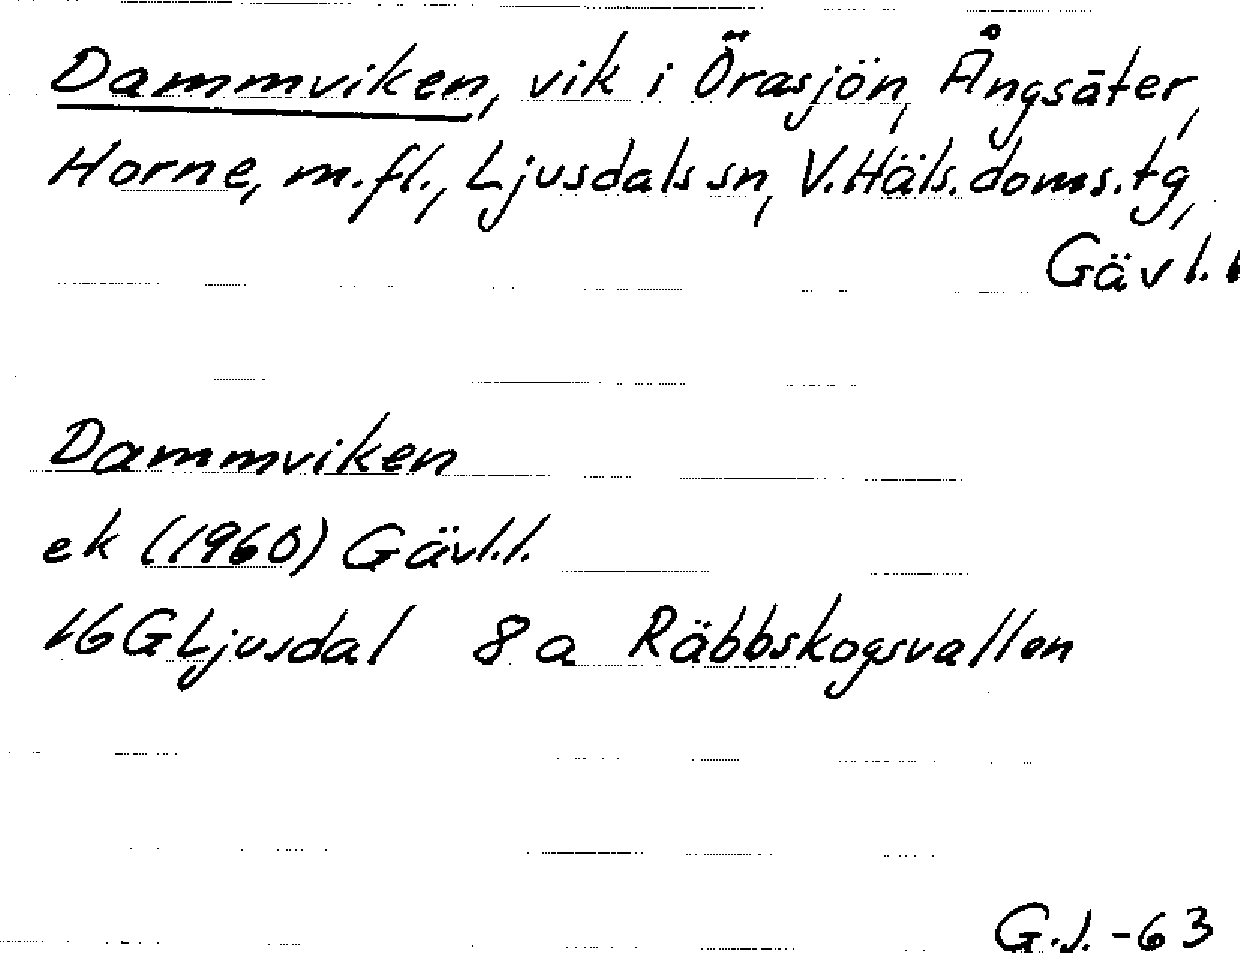 Dammviken, vik i Örasjön, Ångsäter,
Horne, m.fl., Ljusdals sn, V.Häls.doms.tg,
Gävl.l
Dammviken
ek (1960) Gävl.l.
16G Ljusdal 8a Räbbskogsvallen
G.J. -63